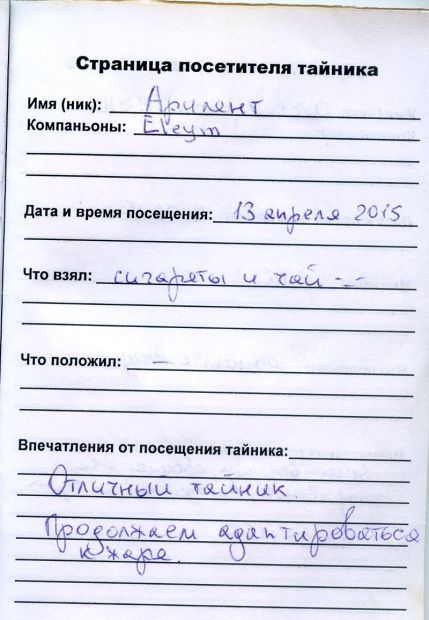 Страница посетителя тайника
Имя (ник): Арилент
Компаньоны: Eleym
Дата и время посещения: 13 апреля 2015
Что взял: сигареты и чай -_-
Что положил: —
Впечатления от посещения тайника:
Отличный тайник.
Продолжаем адаптироваться
к жаре.